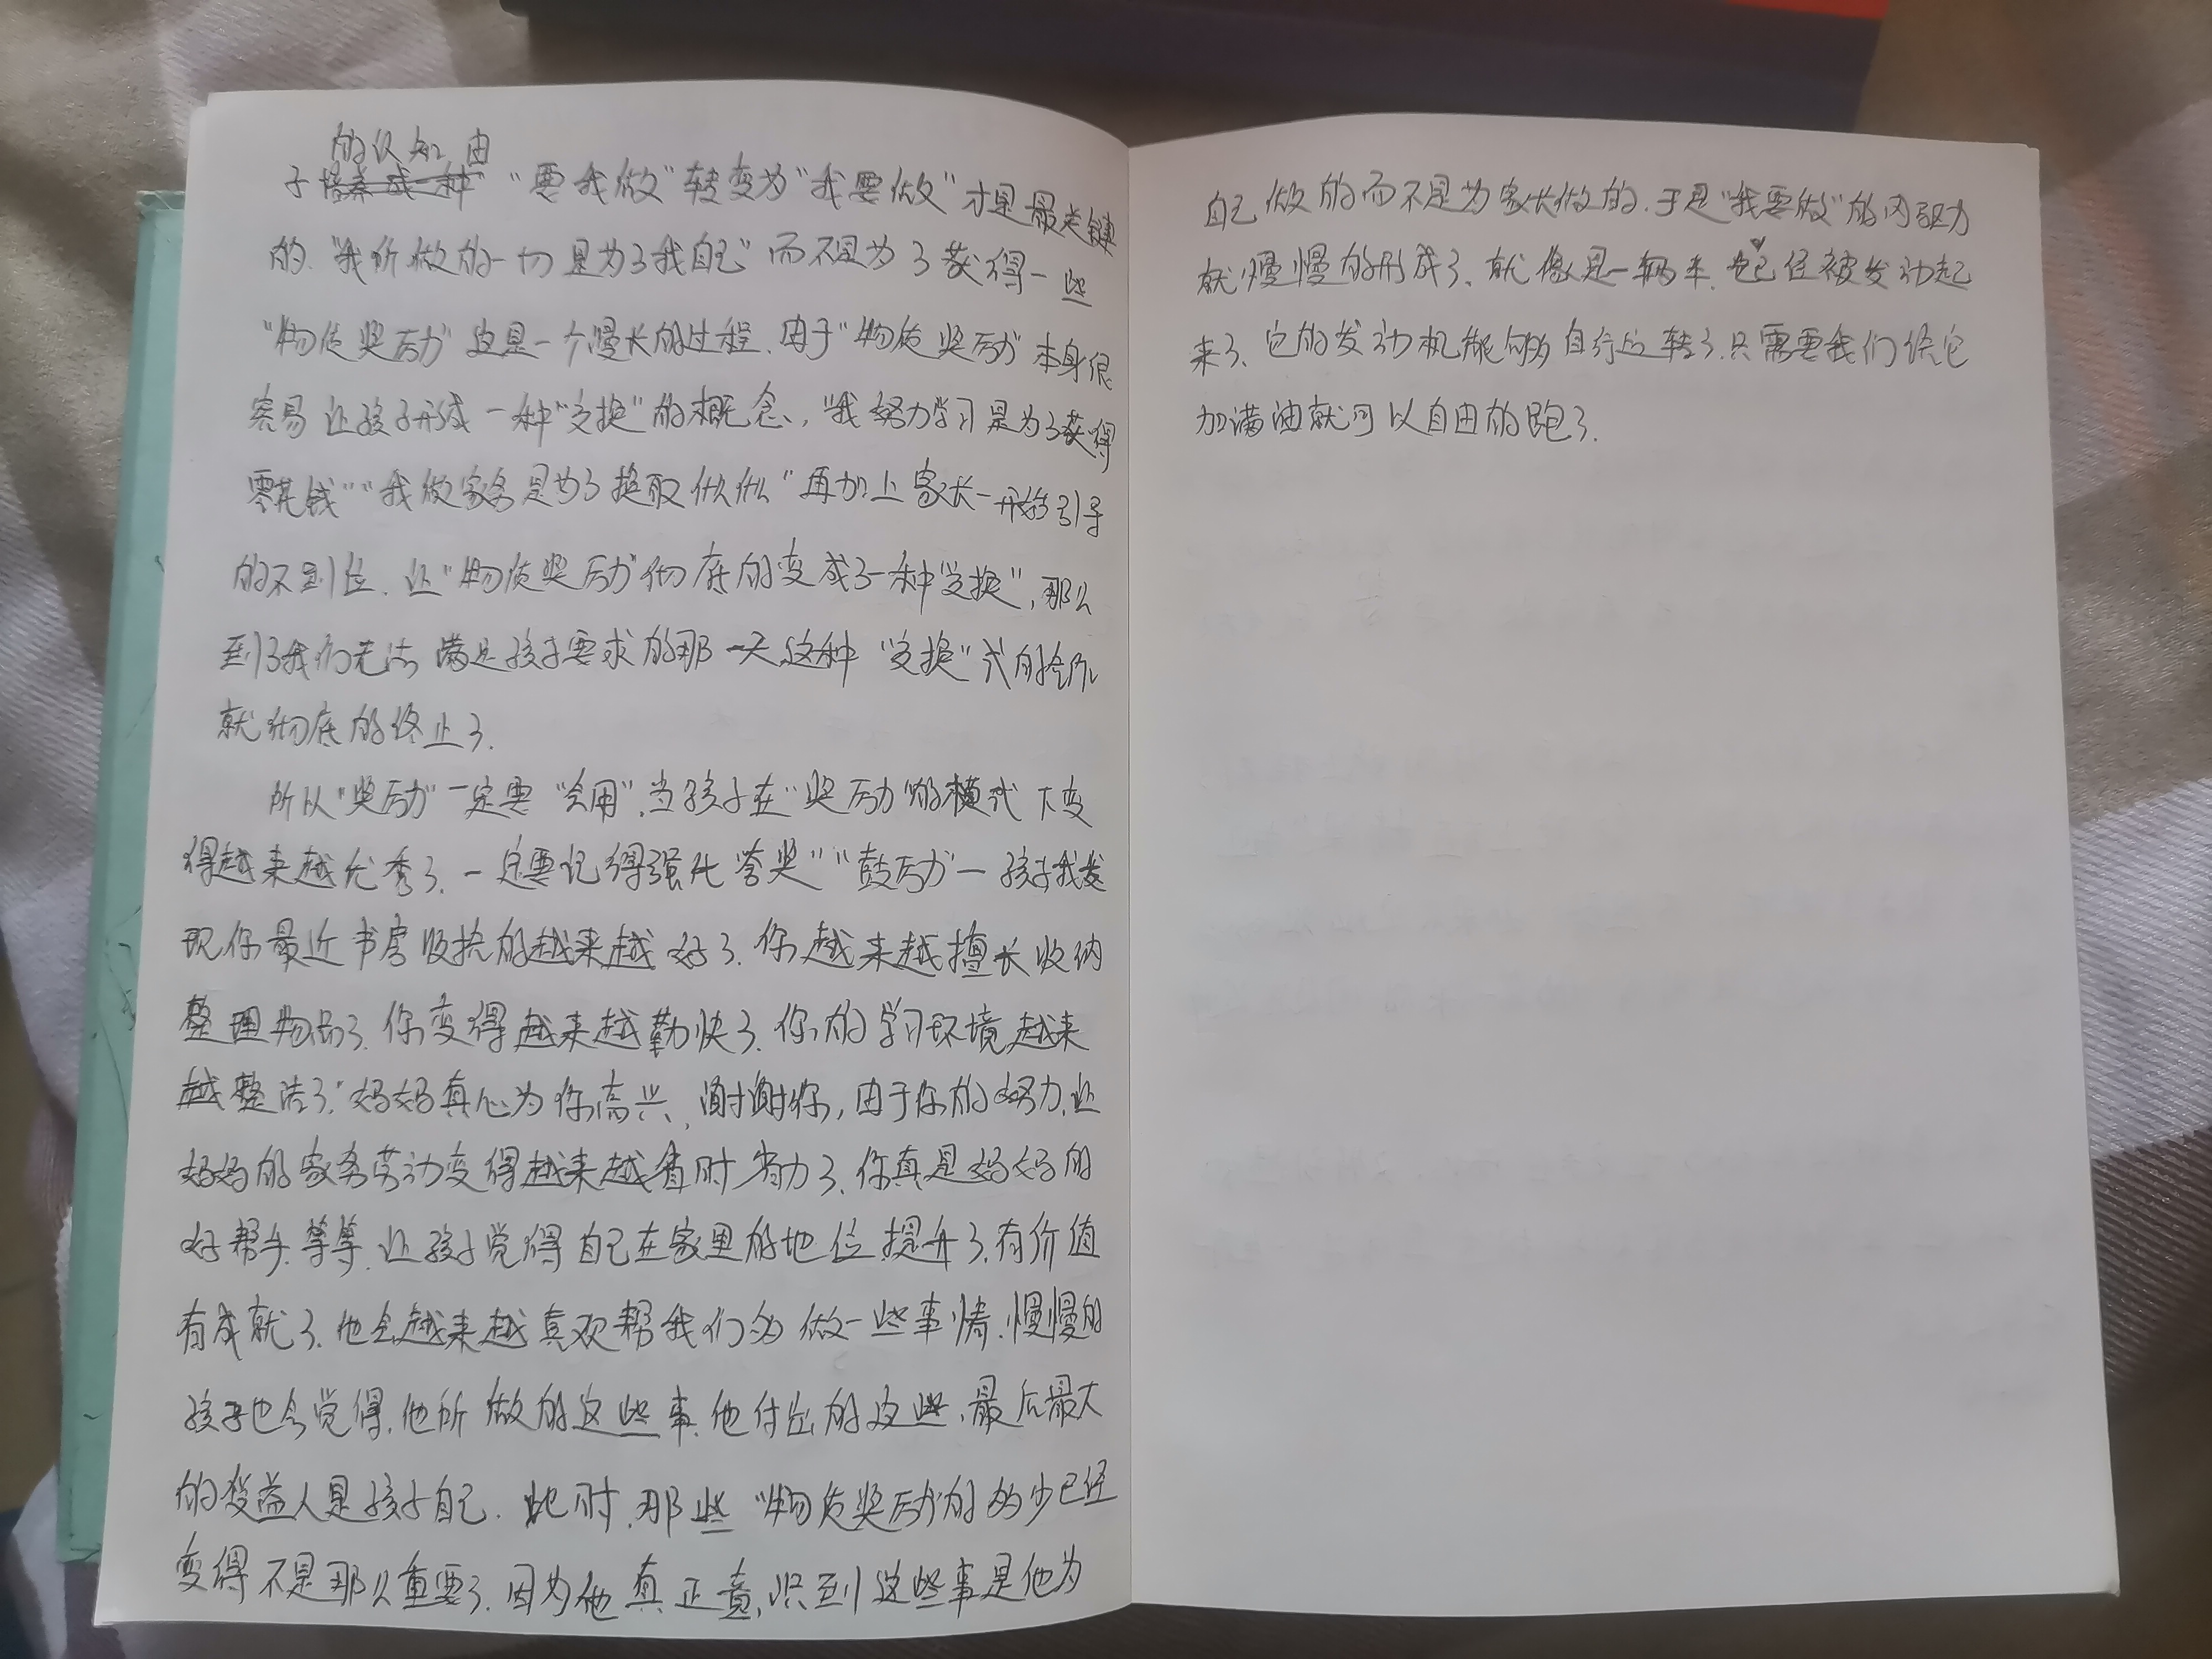 的认知由
子培养成一种 "要我做"转变为"我要做"才是最关键
的."我所做的一切是为了我自己"而不是为了获得一些
"物质奖励"这是一个慢长的过程.由于"物质奖励"本身很
容易让孩子形成一种"交换"的概念,"我努力学习是为了获得
零花钱""我做家务是为了换取什么什么"再加上家长一开始引导
的不到位.让"物质奖励"彻底的变成了一种"交换",那么
到了我们无法满足孩子要求的那一天,这种"交换"式的
就彻底的终止了.
所以"奖励"一定要"会用".当孩子在"奖励"的模式下变
得越来越优秀了.一定要记得强化夸奖""鼓励"一孩子我发
现你最近书房收拾的越来越好了.你越来越擅长收纳
整理物品了.你变得越来越勤快了.你的学习环境越来
越整洁了."妈妈真心为你高兴、谢谢你,由于你的努力.让
妈妈的家务劳动变得越来越省时省力了.你真是妈妈的
好帮手.等等.让孩子觉得自己在家里的地位提升了.有价值
有成就了.他会越来越喜欢帮我们多做一些事情.慢慢的
孩子也会觉得.他所做的这些事.他付出的这些.最后最大
的受益人是孩子自己.此时.那些"物质奖励"的多少已经
变得不是那么重要了.因为他真正意识到这些事是他为
自己做的而不是为家长做的.于是"我要做"的内驱力
就慢慢的形成了.就像是一辆车.它已经被发动起
来了.它的发动机能够自行运转了.只需要我们给它
加满油就可以自由的跑了.